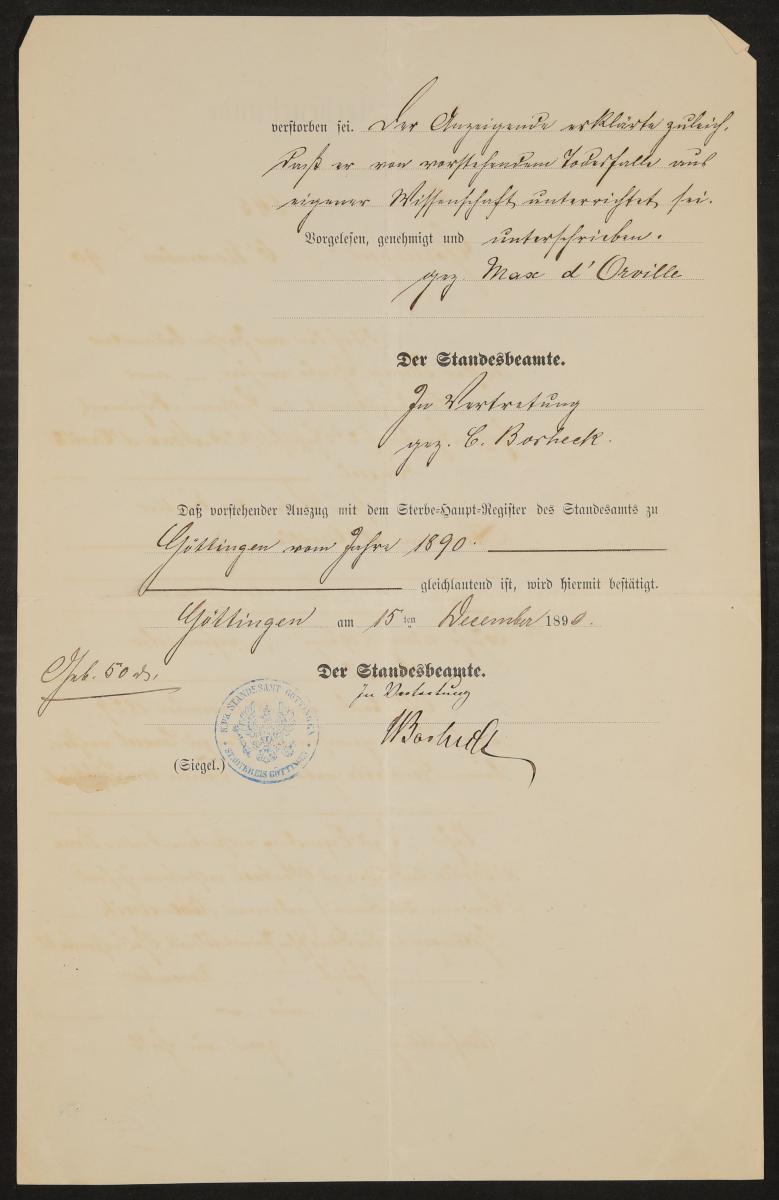 verstorben sei. Der Anzeigende erklärte zuleich,
daß er von vorstehendem Todesfalle aus
eigener Wissenschaft unterrichtet sei.
Vorgelesen, genehmigt und unterschrieben.
gez. Max d'Orville
Der Standesbeamte.
In Vertretung
gez. C. Borheck.
Daß vorstehender Auszug mit dem Sterbe-Haupt-Register des Standesamts zu
Göttingen vom Jahre 1890.
gleichlautend ist, wird hiermit bestätigt.
Göttingen am 15ten December 1890.
Geb. 50 d.
Der Standesbeamte.
In Vertretung
Borheck
KPR. STANDESAMT GÖTTINGEN
STADTKREIS GÖTTINGEN
(Siegel.)